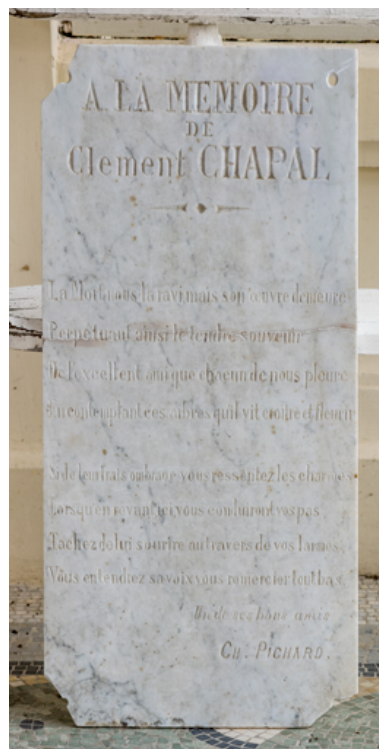 A LA MEMOIRE
DE
Clement CHAPAL
La Mort nous l'a ravi mais son œuvre demeure
Perpetuant ainsi le tendre souvenir
De l'excellent ami que chacun de nous pleure
En contemplant ces arbres qu'il vit croitre et fleurir
Si de leur frais ombrage vous ressentez les charmes
Lorsqu'en revant ici vous conduiront vos pas
Tachez de lui sourire au travers de vos larmes
Vous entendrez sa voix vous remercier tout bas
Un de ses bons amis
CH. PICHARD.